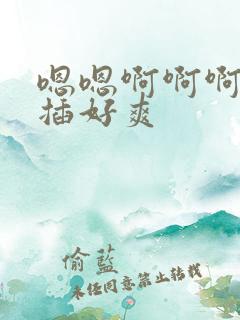 嗯嗯啊啊啊
插好爽
偷蓝
未经同意禁止转载